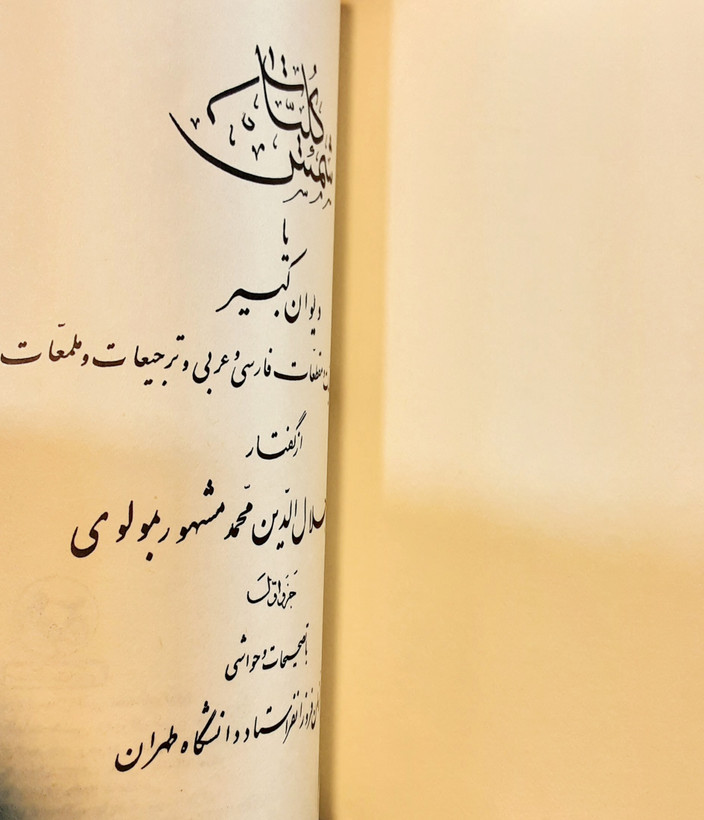 کلیّات شمس
یا
دیوان کبیر
فارسی و عربی و ترجیعات و ملمّعات
از گفتار
الدّین محمّد مشهور بمولوی
جزو اوّل
با تصحیحات و حواشی
استاد دانشگاه طهران